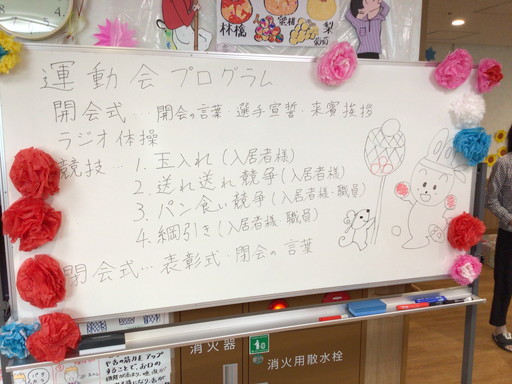 林檎
梨
葡萄
運動会プログラム
開会式…開会の言葉・選手宣誓・来賓挨拶
ラジオ体操
競技…1.玉入れ(入居者様)
2.送れ送れ競争(入居者様)
3.パン食い競争(入居者様・職員)
4.綱引き(入居者様・職員)
閉会式…表彰式・閉会の言葉
消火器
消火用散水栓